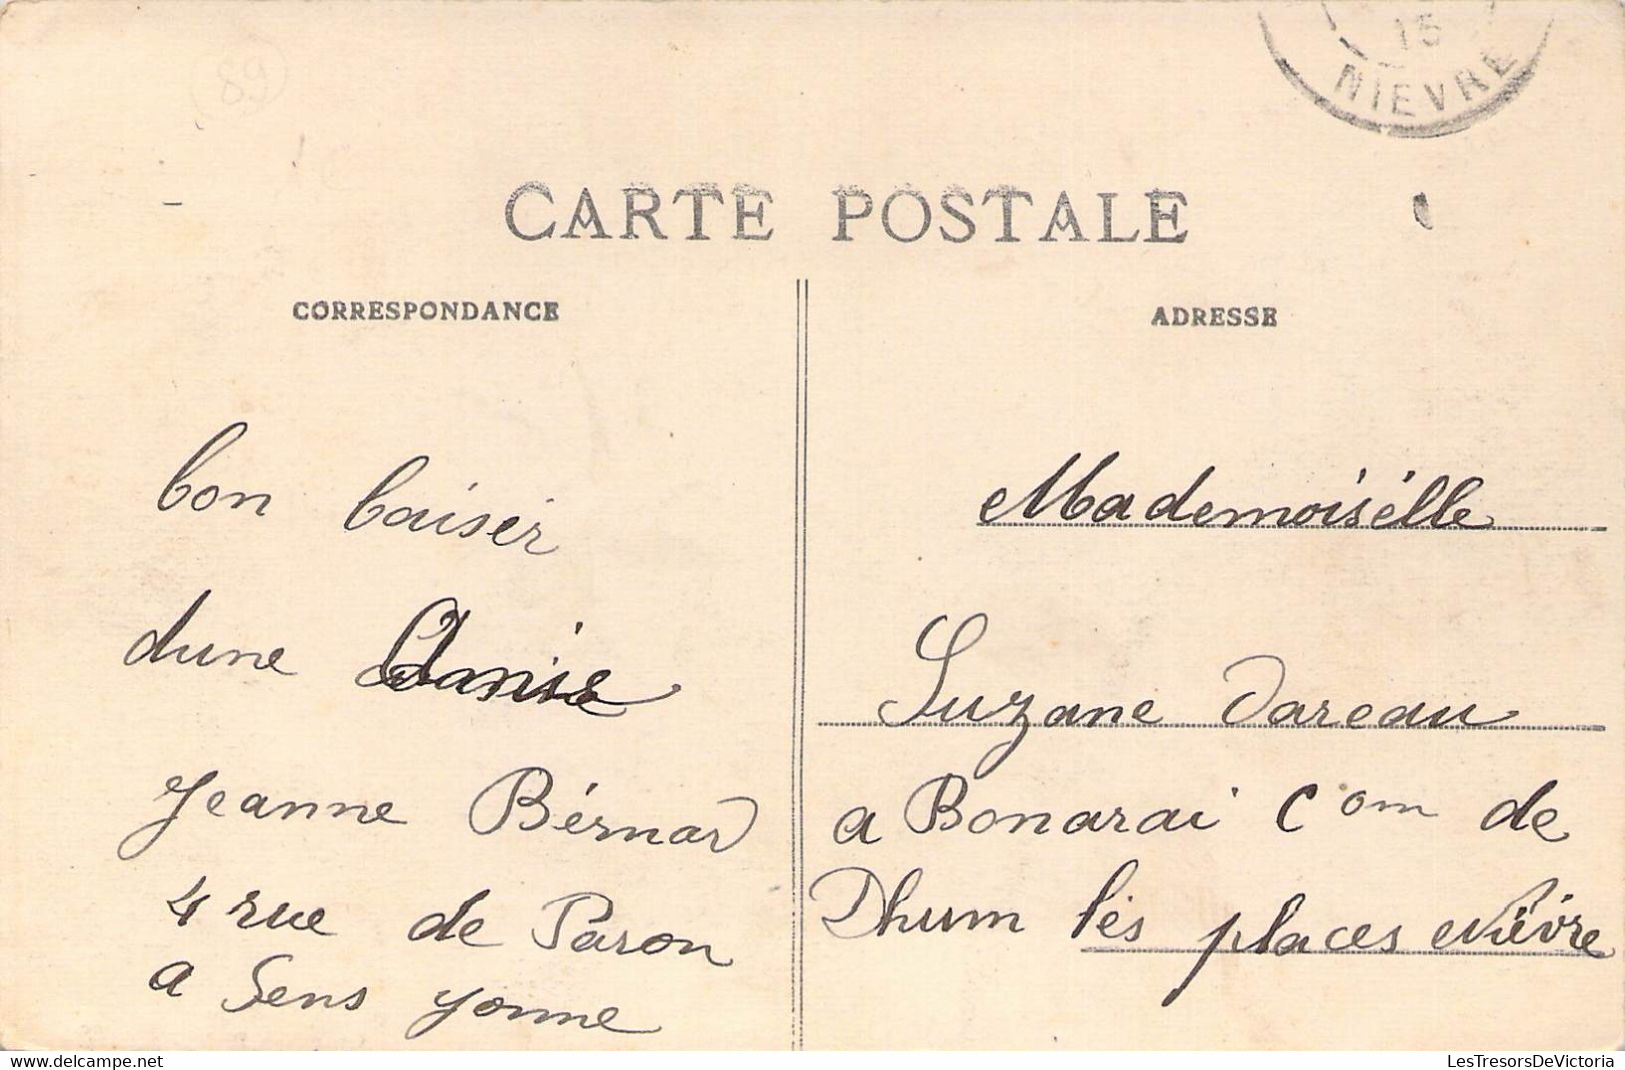 89
15
NIEVRE
CARTE POSTALE
CORRESPONDANCE
bon baiser
dune Amie
Jeanne Bérnard
4 rue de Paron
a Sens yonne
ADRESSE
Mademoisélle
Suzane Dareau
a Bonarai Com de
Dhum lés places Nièvre
Delcampe.net
LesTresorsDeVictoria